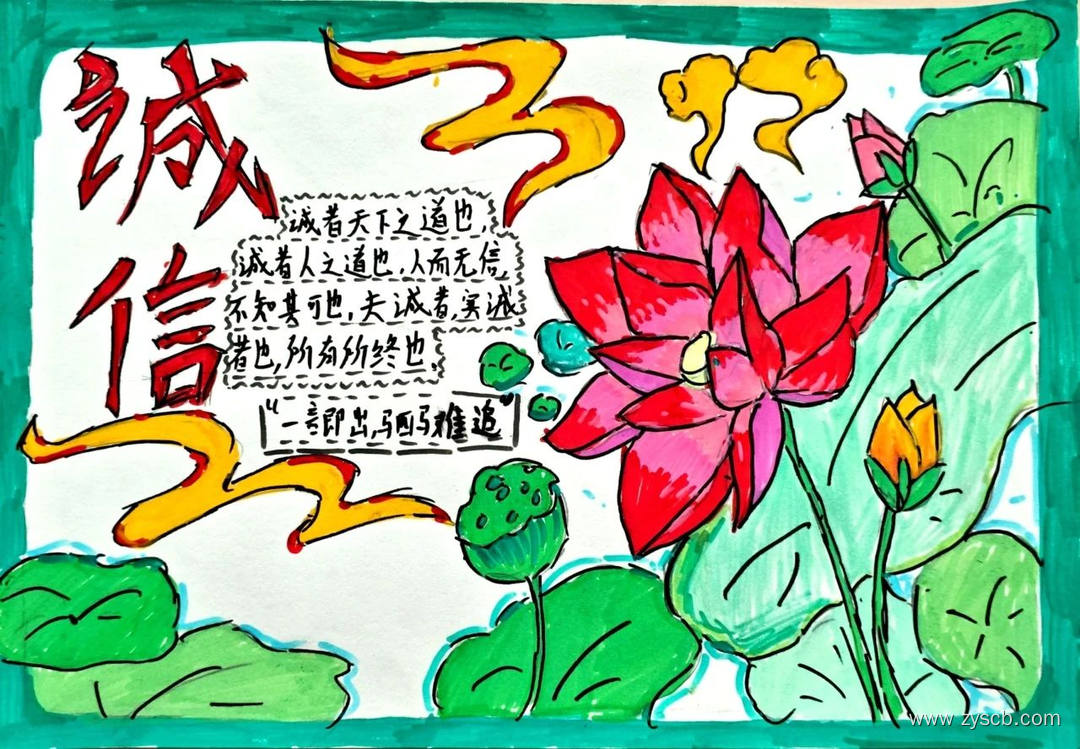 誠
信
诚者天下之道也,
诚者人之道也,人而无信,
不知其可也,夫诚者,实诚
者也,所有所终也,
“一言即出,驷马难追”
www.zyscb.com